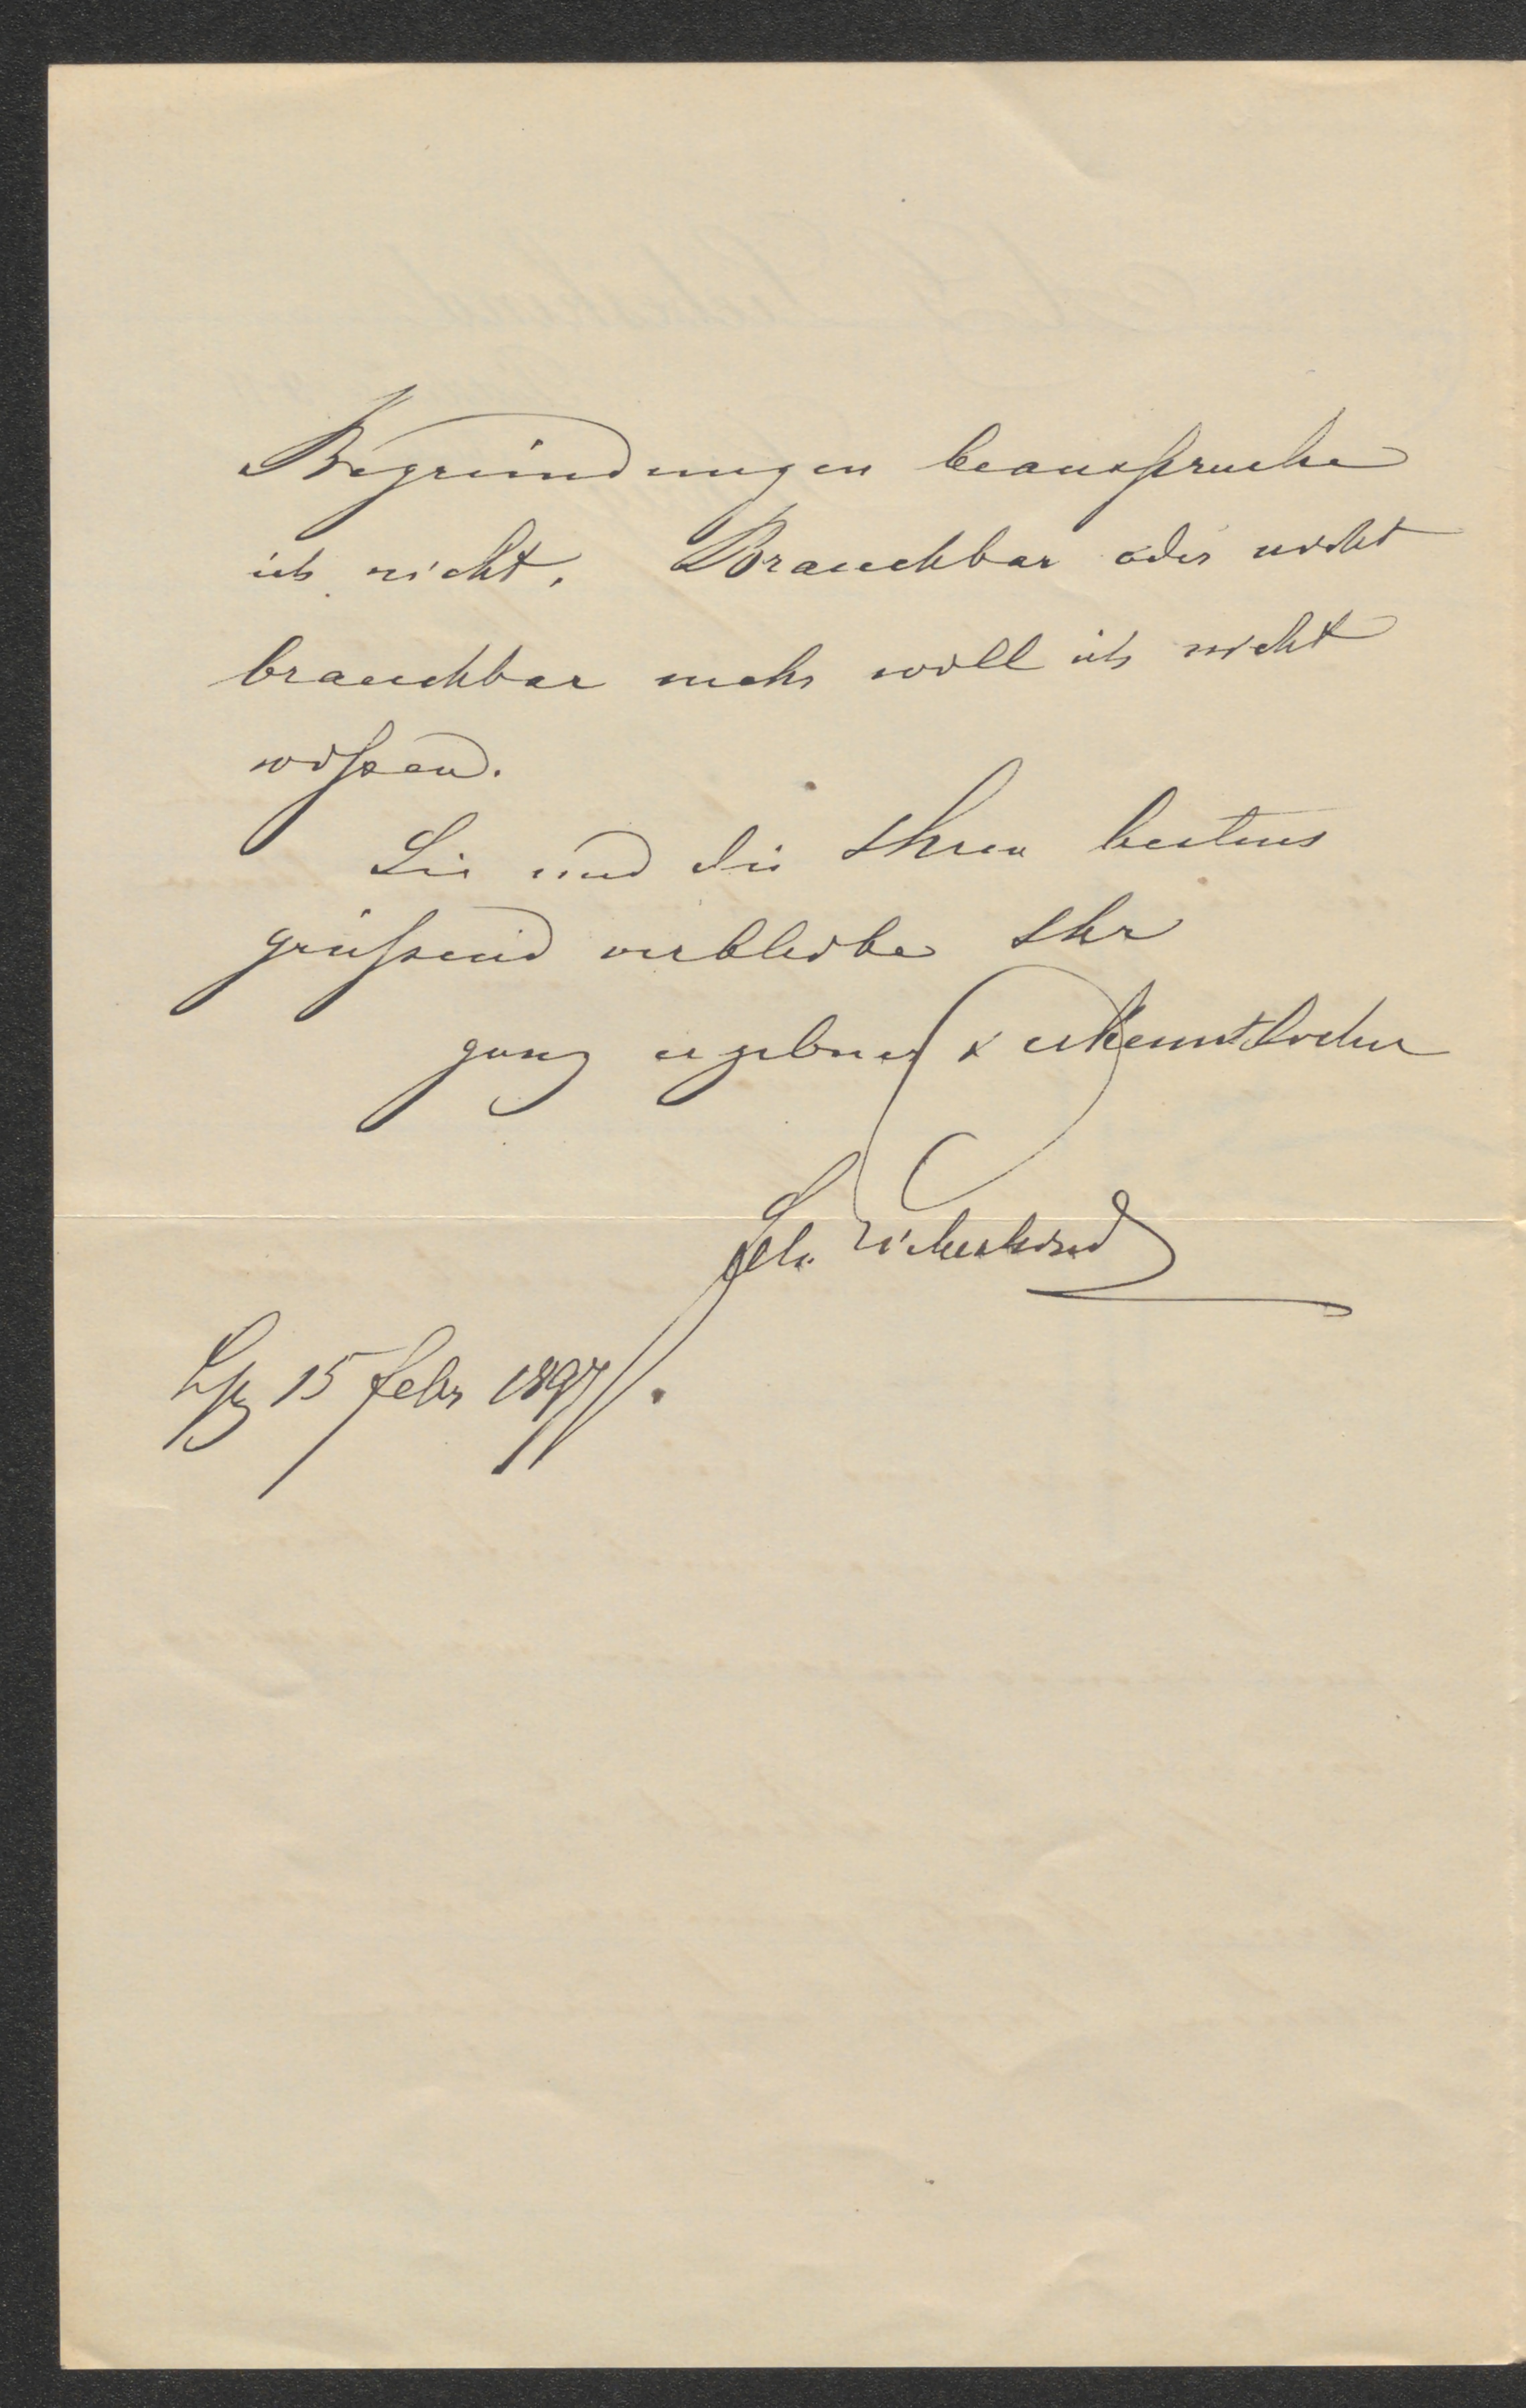 Begründungen beanspruche
ich nicht. Brauchbar oder nicht
brauchbar mehr will ich nicht
wissen.
Sie und die Ihren bestens
grüssend verbleibe Ihr
ganz ergebner & erkenntlicher
Liebeskind
Lpz 15 Febr 1897.